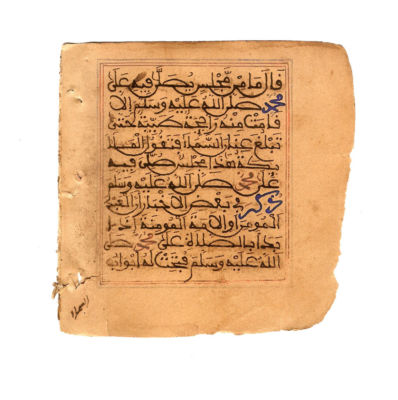 قال ما من مجلس يصلى فيه على
محمد صلى الله عليه وسلم الا
قامت منه رايحة طيبة حتى
تبلغ عنان السماء فتقول الملا
يكة هذا مجلس صلي فيه
على محمد صلى الله عليه وسلم
ذكر في بعض الاخبار ان العبد
المومن او الامة المومنة اذا
بدا بالصلاة على محمد صلى
الله عليه وسلم فتحت له ابواب
السماء